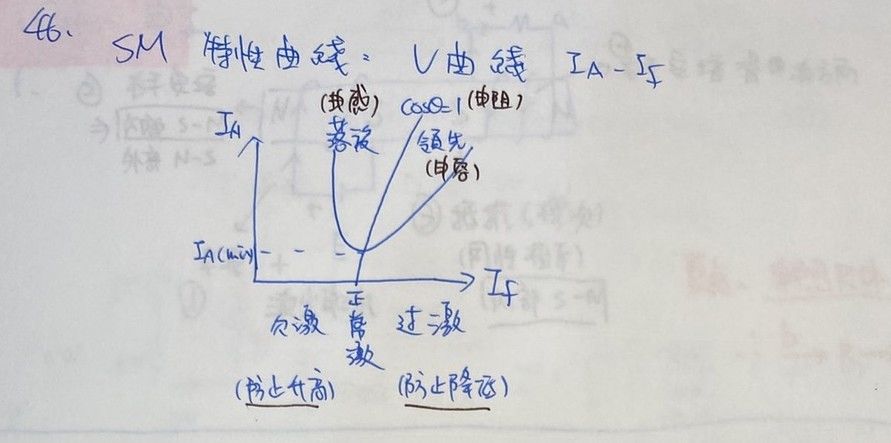 46.
SM 特性曲线: V曲线 IA - If
(电感) cosθ=1 (电阻)
IA 落后 领先
(电容)
IA(min)
If
欠激 正常激 过激
(防止升高) (防止降低)